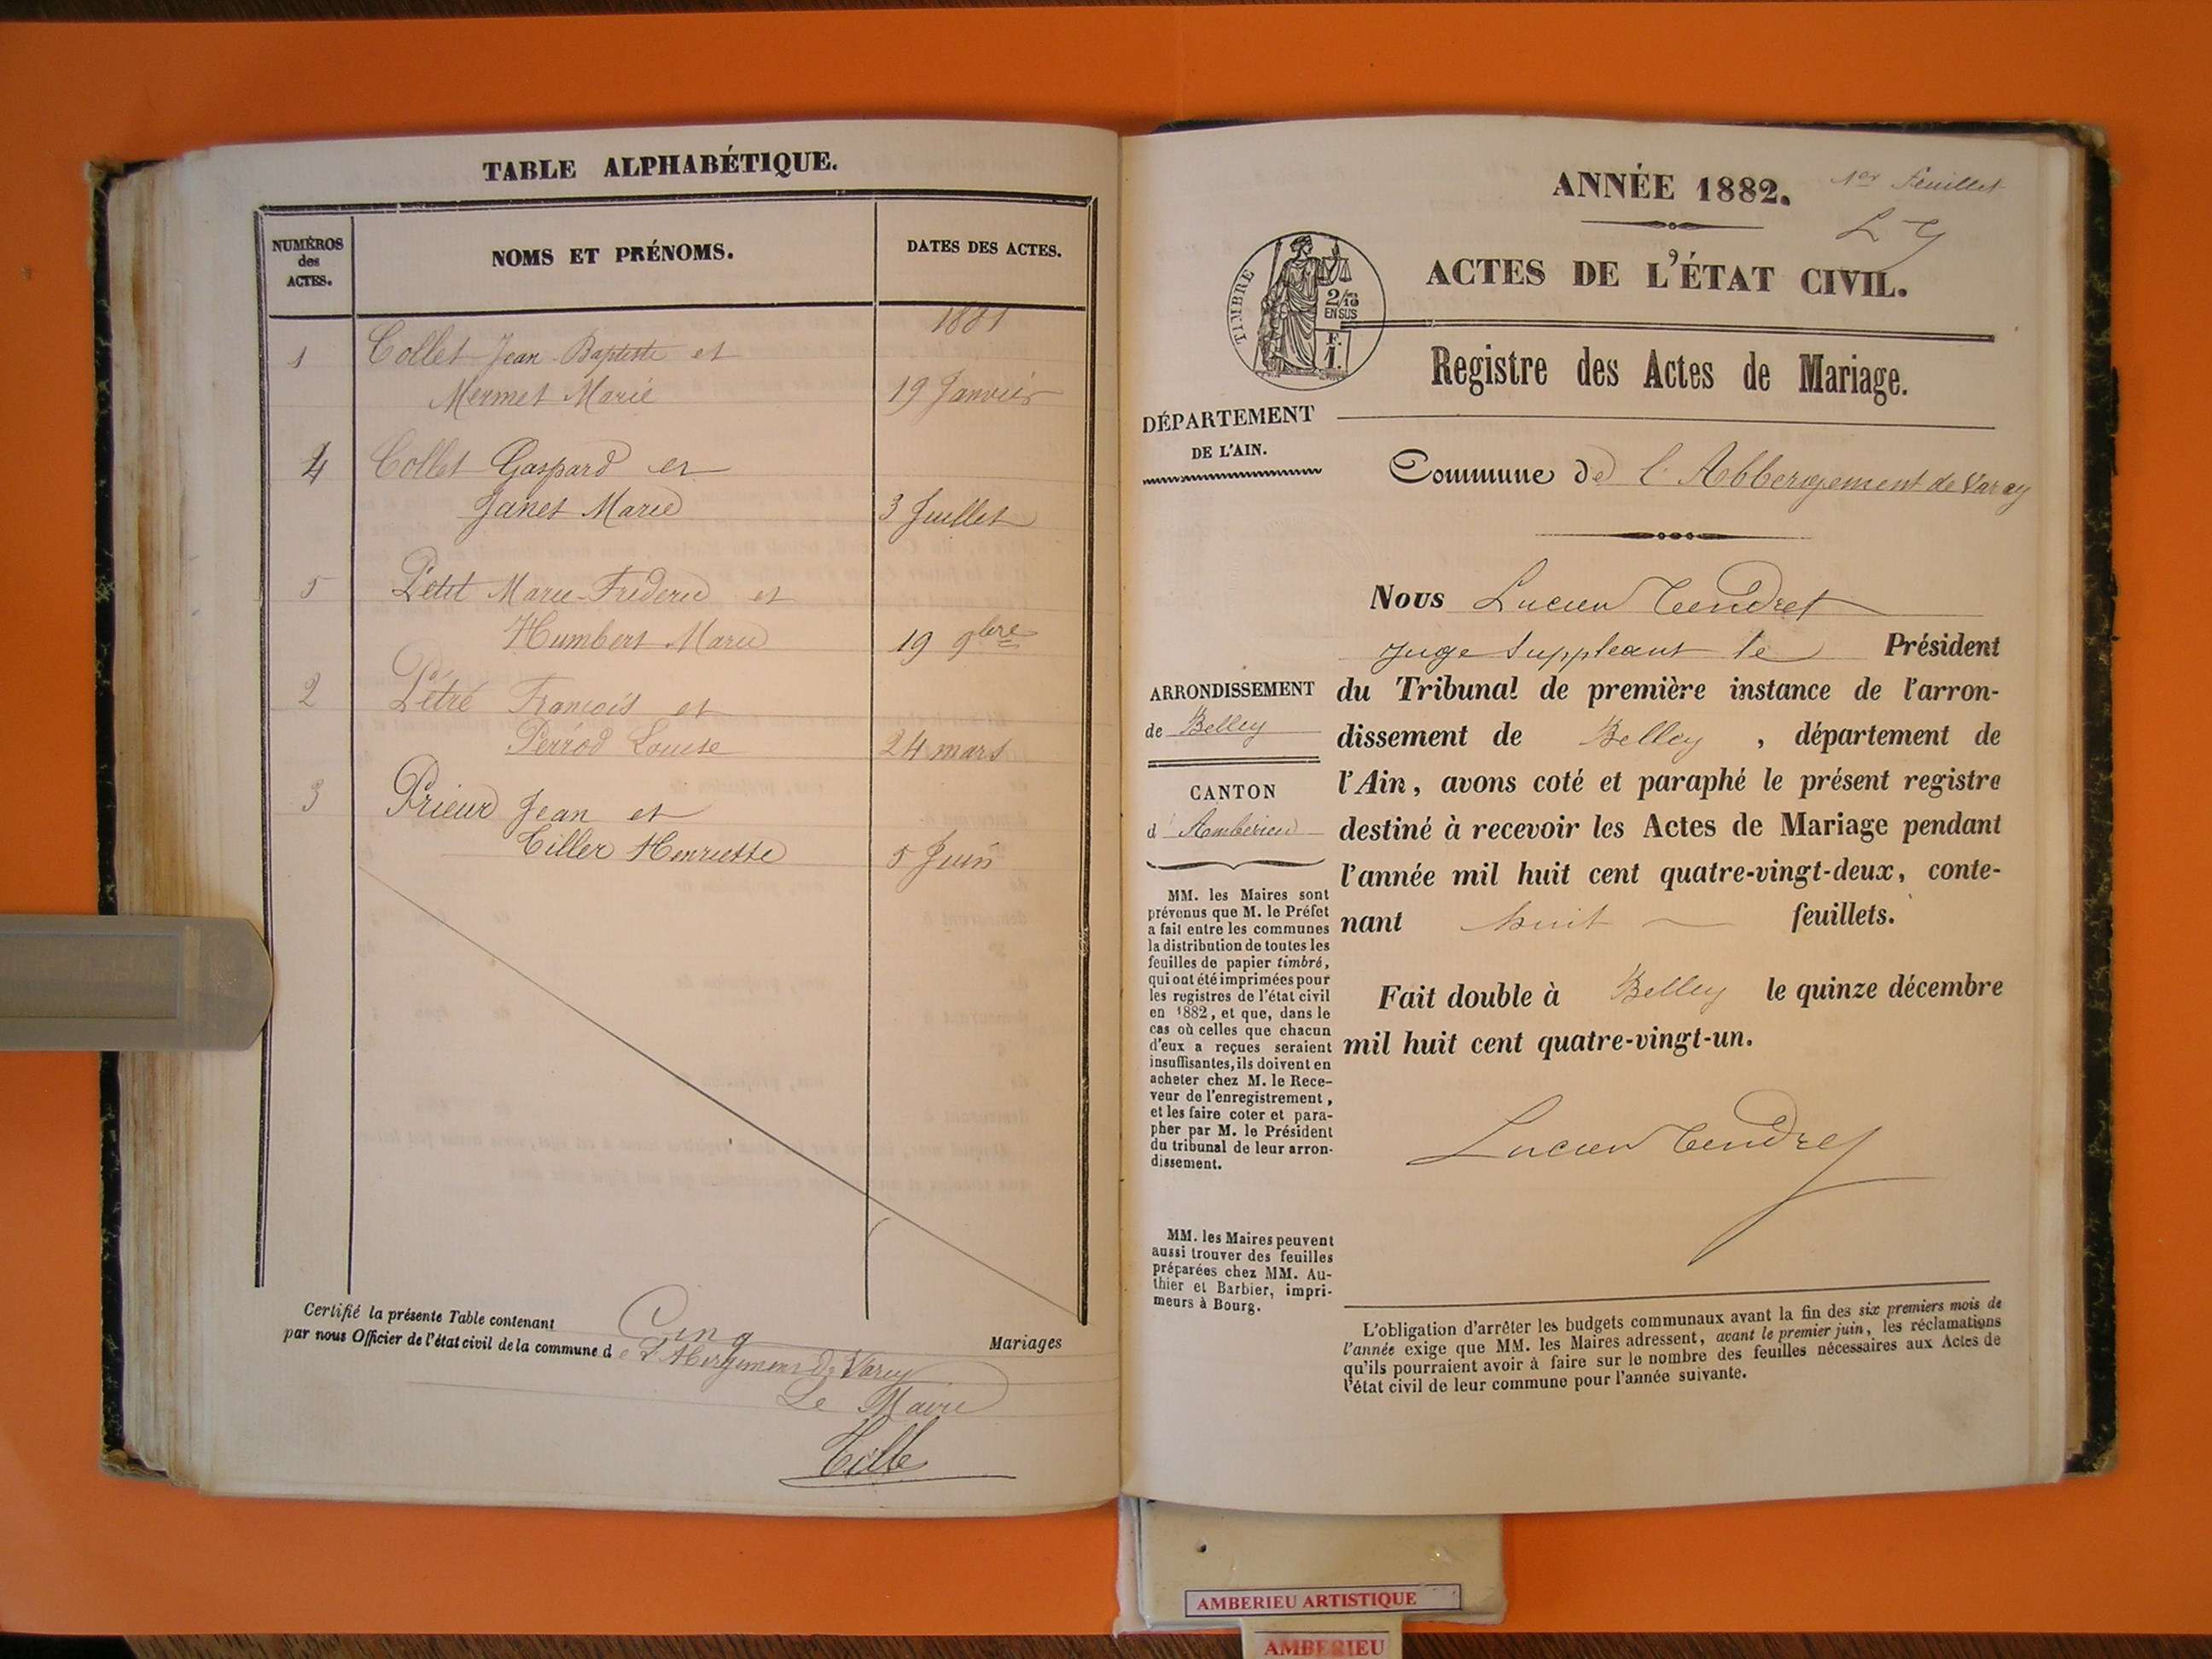 TABLE ALPHABÉTIQUE.
NUMÉROS
des
ACTES.
NOMS ET PRÉNOMS.
DATES DES ACTES.
1881
1 Collet Jean-Baptiste et
Mermet Marie 19 Janvier
4 Collet Gaspard et
Janet Marie 3 Juillet
5 Petit Marie-Frédéric et
Humbert Marie 19 9bre
2 Pétré François et
Perrod Louise 24 mars
3 Prieur Jean et
Tiller Henriette 5 Juin
Certifié la présente Table contenant Cinq Mariages
par nous Officier de l'état civil de la commune de L'Abergement de Varey
Le Maire
ANNÉE 1882.
1er Feuillet
ACTES DE L'ÉTAT CIVIL.
TIMBRE
2/10
EN SUS
F.
1.
Registre des Actes de Mariage.
DÉPARTEMENT
DE L'AIN.
Commune de l'Abbergement de Varay
Nous Lucien Tendret
Juge Suppléant le Président
du Tribunal de première instance de l'arron-
dissement de Belley, département de
l'Ain, avons coté et paraphé le présent registre
destiné à recevoir les Actes de Mariage pendant
l'année mil huit cent quatre-vingt-deux, conte-
nant huit feuillets.
Fait double à Belley le quinze décembre
mil huit cent quatre-vingt-un.
Lucien Tendret
ARRONDISSEMENT
de Belley
CANTON
d'Ambérieu
MM. les Maires sont
prévenus que M. le Préfet
a fait entre les communes
la distribution de toutes les
feuilles de papier timbré,
qui ont été imprimées pour
les registres de l'état civil
en 1882, et que, dans le
cas où celles que chacun
d'eux a reçues seraient
insuffisantes, ils doivent en
acheter chez M. le Rece-
veur de l'enregistrement,
et les faire coter et para-
pher par M. le Président
du tribunal de leur arron-
dissement.
MM. les Maires peuvent
aussi trouver des feuilles
préparées chez MM. Au-
thier et Barbier, impri-
meurs à Bourg.
L'obligation d'arrêter les budgets communaux avant la fin des six premiers mois de
l'année exige que MM. les Maires adressent, avant le premier juin, les réclamations
qu'ils pourraient avoir à faire sur le nombre des feuilles nécessaires aux Actes de
l'état civil de leur commune pour l'année suivante.
AMBERIEU ARTISTIQUE
AMBERIEU